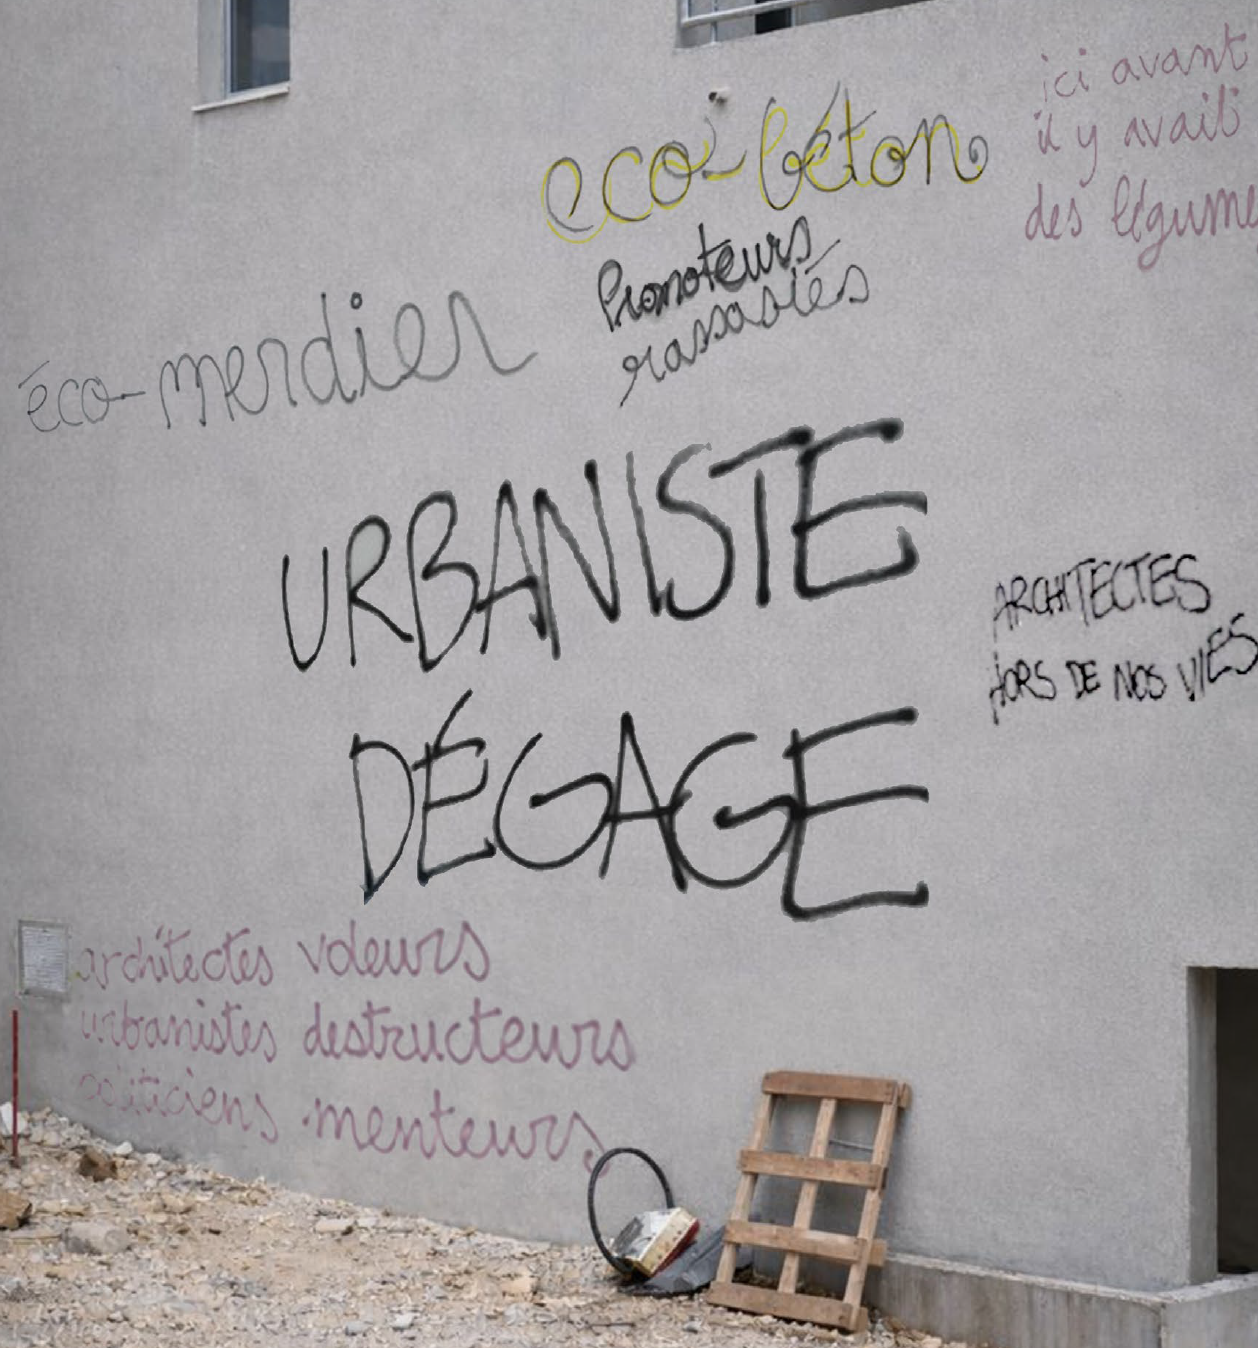 eco-béton
ici avant
il y avait
des légume
Promoteurs
rassasiés
éco-merdier
URBANISTE
DÉGAGE
ARCHITECTES
HORS DE NOS VIES
architectes voleurs
urbanistes destructeurs
politiciens menteurs